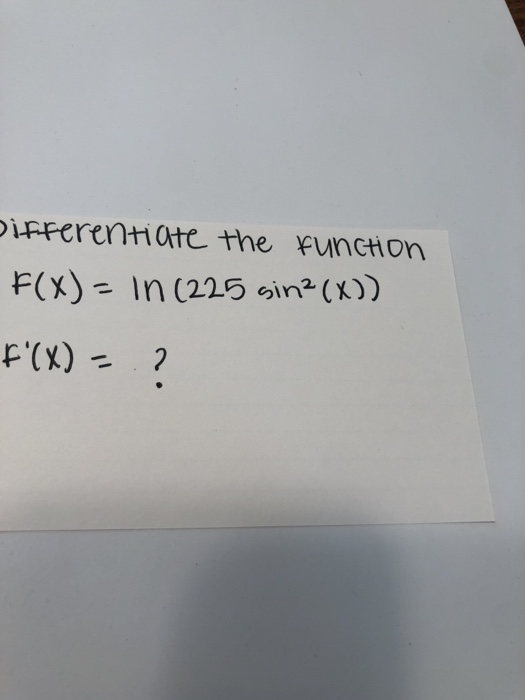 Differentiate the function
F(x) = ln (225 sin² (x))
F'(x) = ?